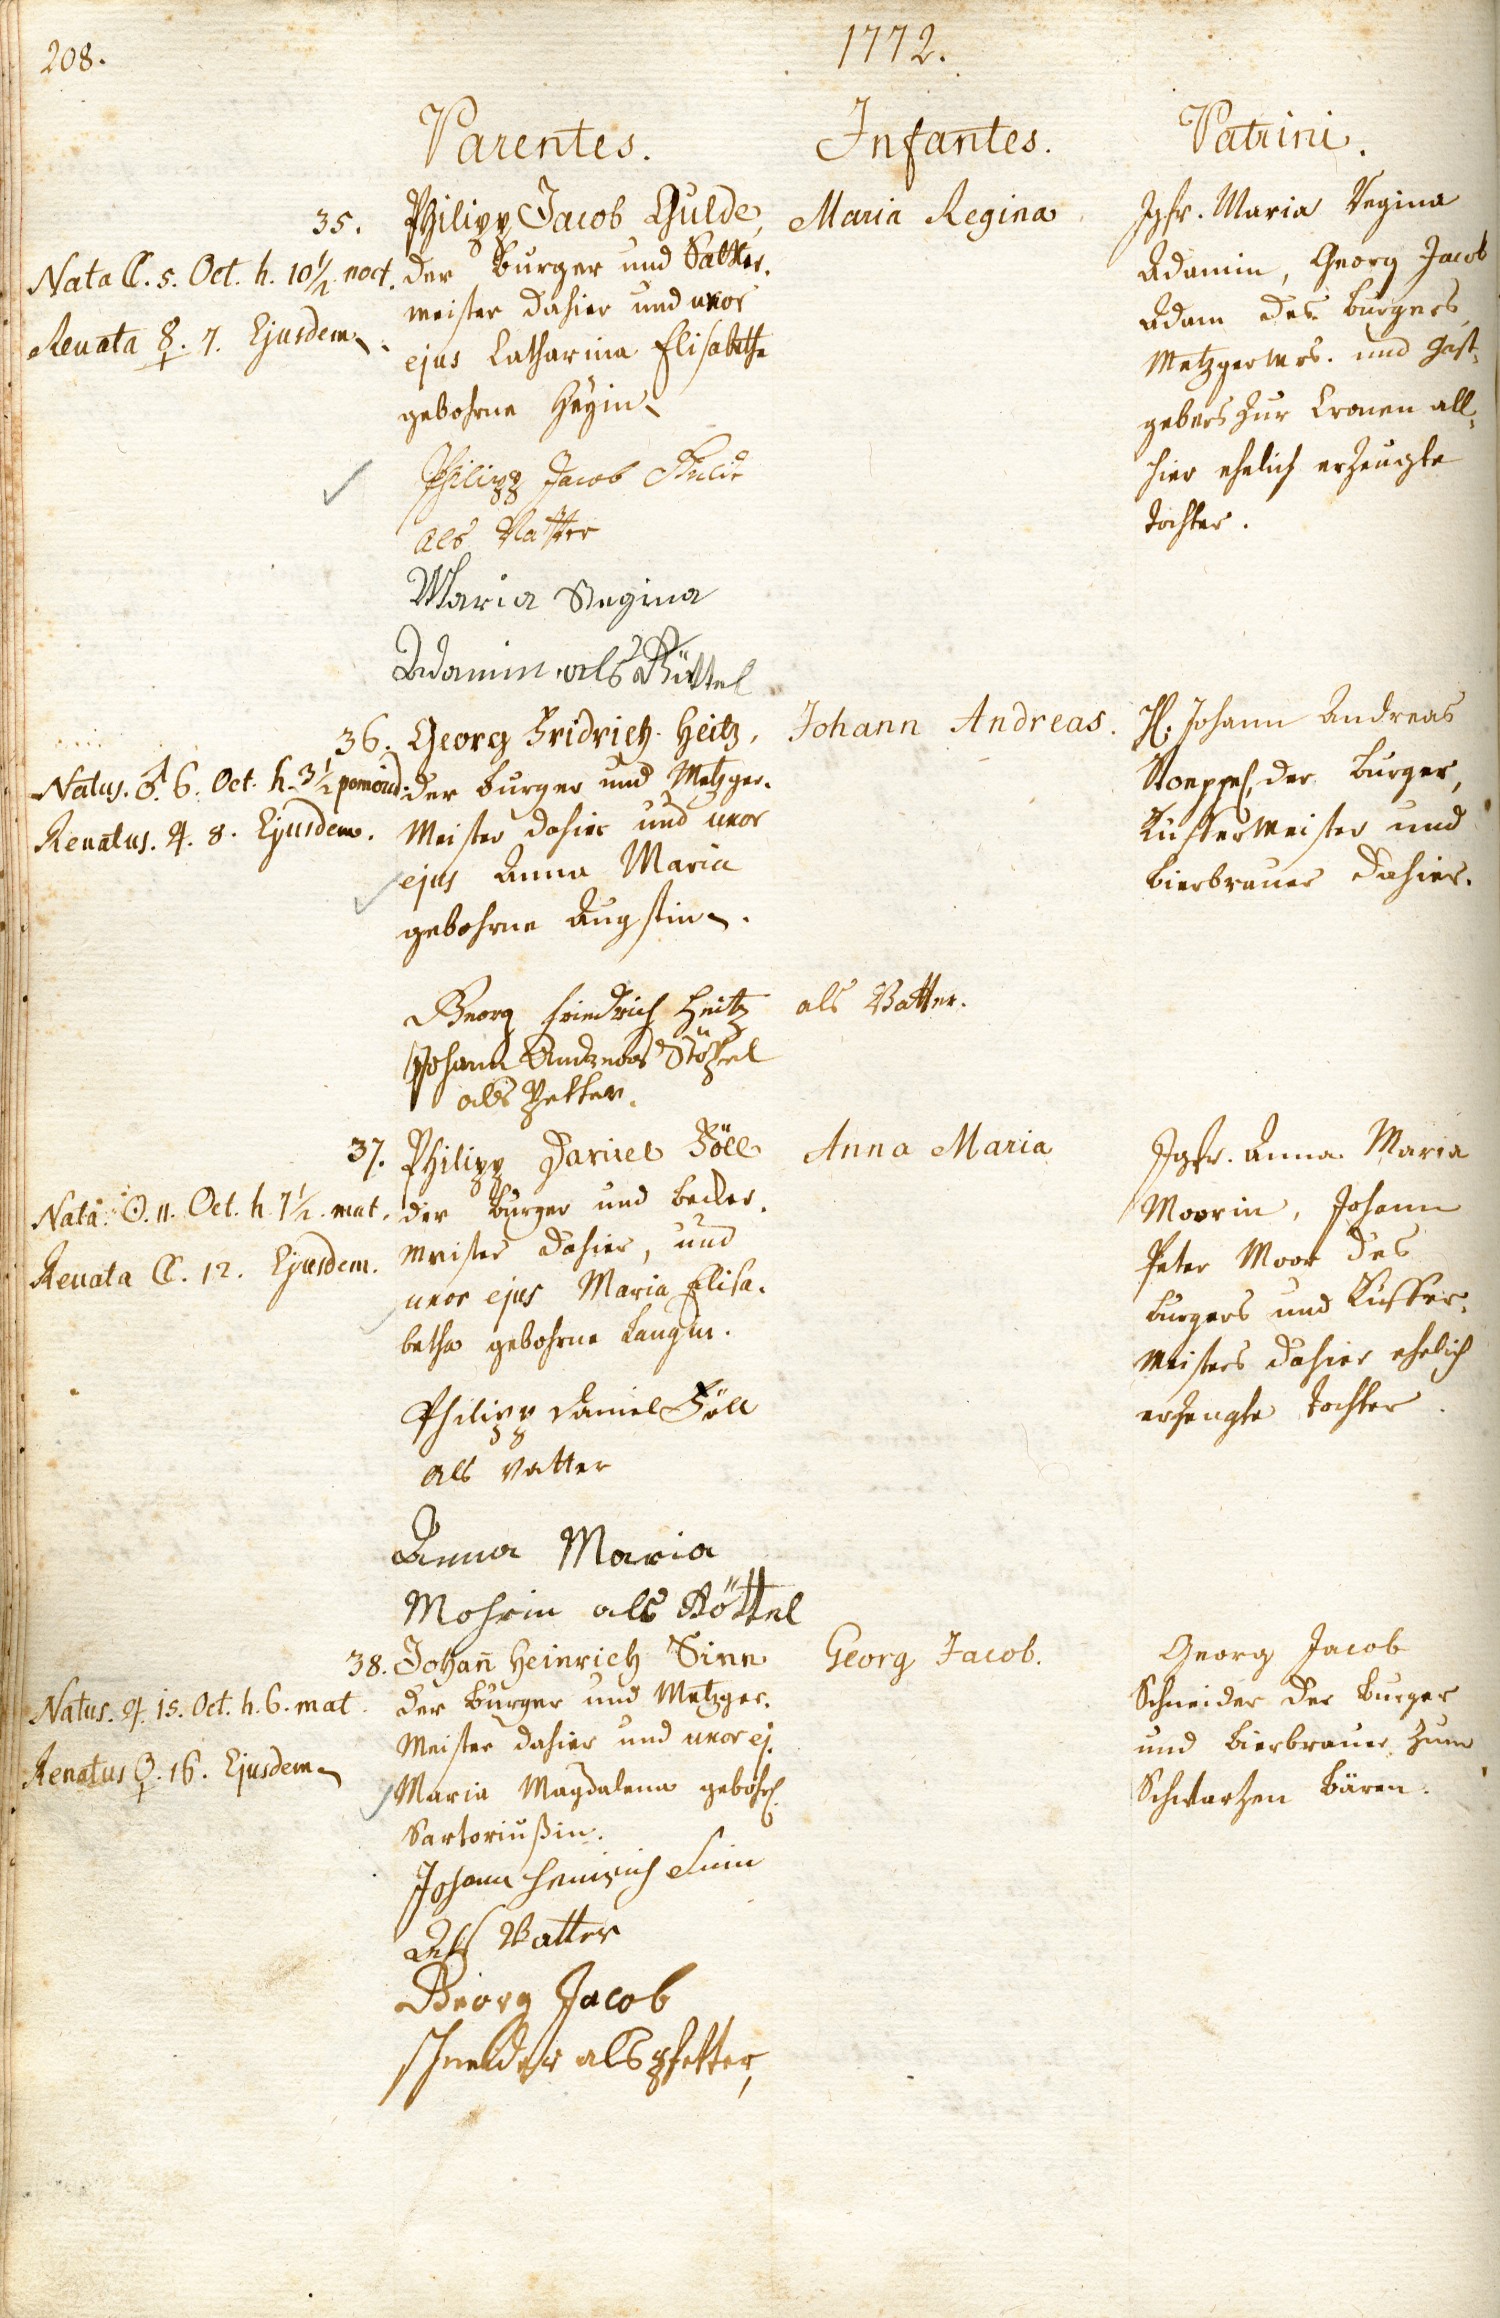 208.
1772.
Parentes.
Infantes.
Patrini.
35.
Nata ☾. 5. Oct. h. 10½ noct.
Renata ☿. 7. Ejusdem.
Philipp Jacob Gulde,
der Burger und Sattler-
meister dahier und uxor
ejus Catharina Elisabetha
gebohrne Heyin.
Philipp Jacob Gulde
als Vatter
Maria Regina
Adamin als Göttel
Maria Regina
Jgfr. Maria Regina
Adamin, Georg Jacob
Adam des Burgers
Metzgermrs. und Gast-
gebers zur Cronen all-
hier ehelich erzeugte
Tochter.
36.
Natus. ♂. 6. Oct. h. 3½ pomerid.
Renatus. ♃. 8. Ejusdem.
Georg Fridrich Heitz,
der Burger und Metzger-
Meister dahier und uxor
ejus Anna Maria
gebohrne Augstin.
Georg Friedrich Heitz als Vatter.
Johann Andreas Stöppel
als Petter.
Johann Andreas.
H. Johann Andreas
Stoeppel, der Burger,
Küffermeister und
Bierbrauer dahier.
37.
Nata. ☉. 11. Oct. h. 7½. mat.
Renata ☾. 12. Ejusdem.
Philipp Daniel Föll
der Burger und Becker-
meister dahier, und
uxor ejus Maria Elisa-
betha gebohrne Langin.
Philipp Daniel Föll
als Vatter
Anna Maria
Mohrin als Göttel
Anna Maria
Jgfr. Anna Maria
Moorin, Johann
Peter Moor des
Burgers und Küffer-
meisters dahier ehelich
erzeugte Tochter.
38.
Natus. ♃. 15. Oct. h. 6. mat.
Renatus ♀. 16. Ejusdem
Johan̄ Heinrich Sinn
der Burger und Metzger-
Meister dahier und uxor ej.
Maria Magdalena gebohr.
Sartoriußin.
Johann Heinrich Sinn
Als Vatter
Georg Jacob
schneider als pfetter,
Georg Jacob.
Georg Jacob
Schneider der Burger
und Bierbrauer zum
Schwartzen Bären.